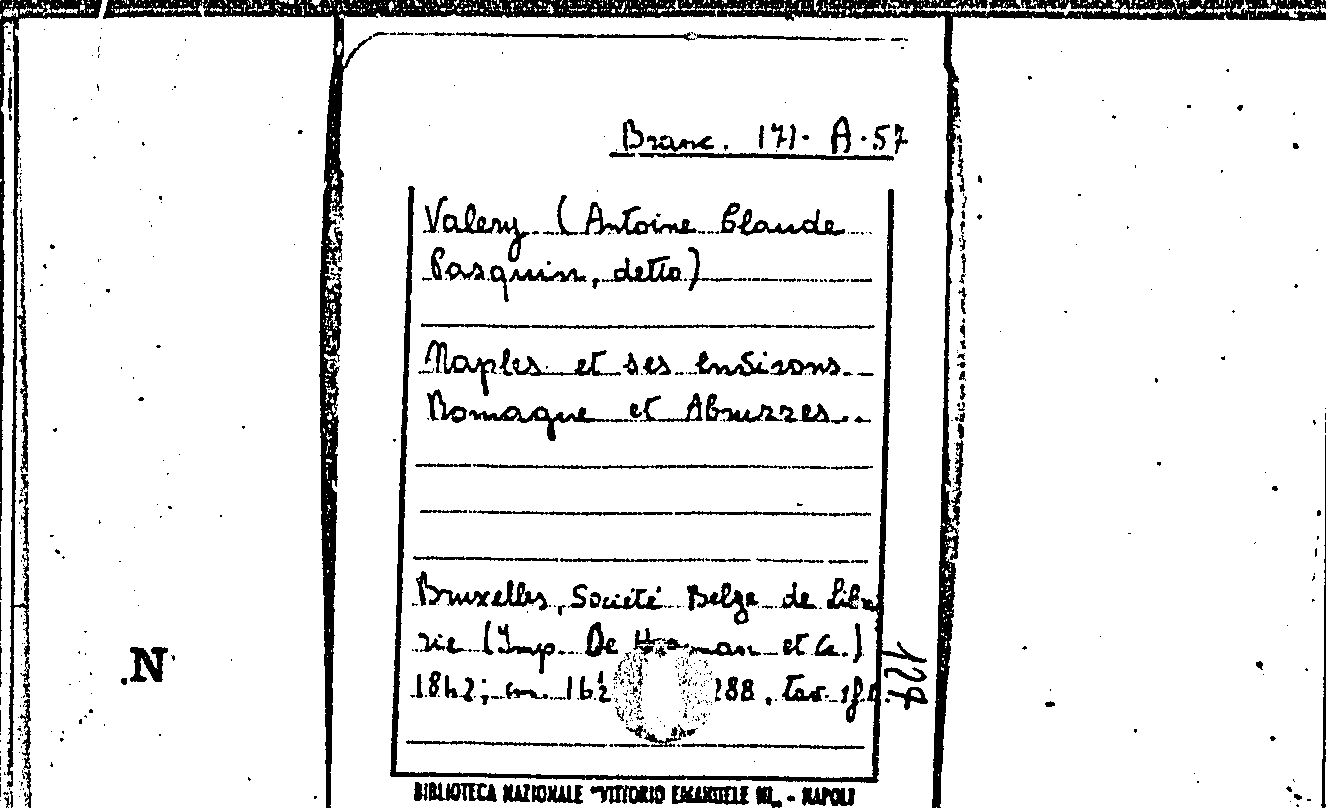 Branc. 171. A. 57
Valery (Antoine Claude
Pasquin, detto)
Naples et ses environs
Romagne et Abruzzes..
Bruxelles, Société Belge de Libra
rie (Imp. De et Ce.)
1842; cm. 288, tav.
127
.N
BIBLIOTECA NAZIONALE "VITTORIO EMANUELE III" - NAPOLI